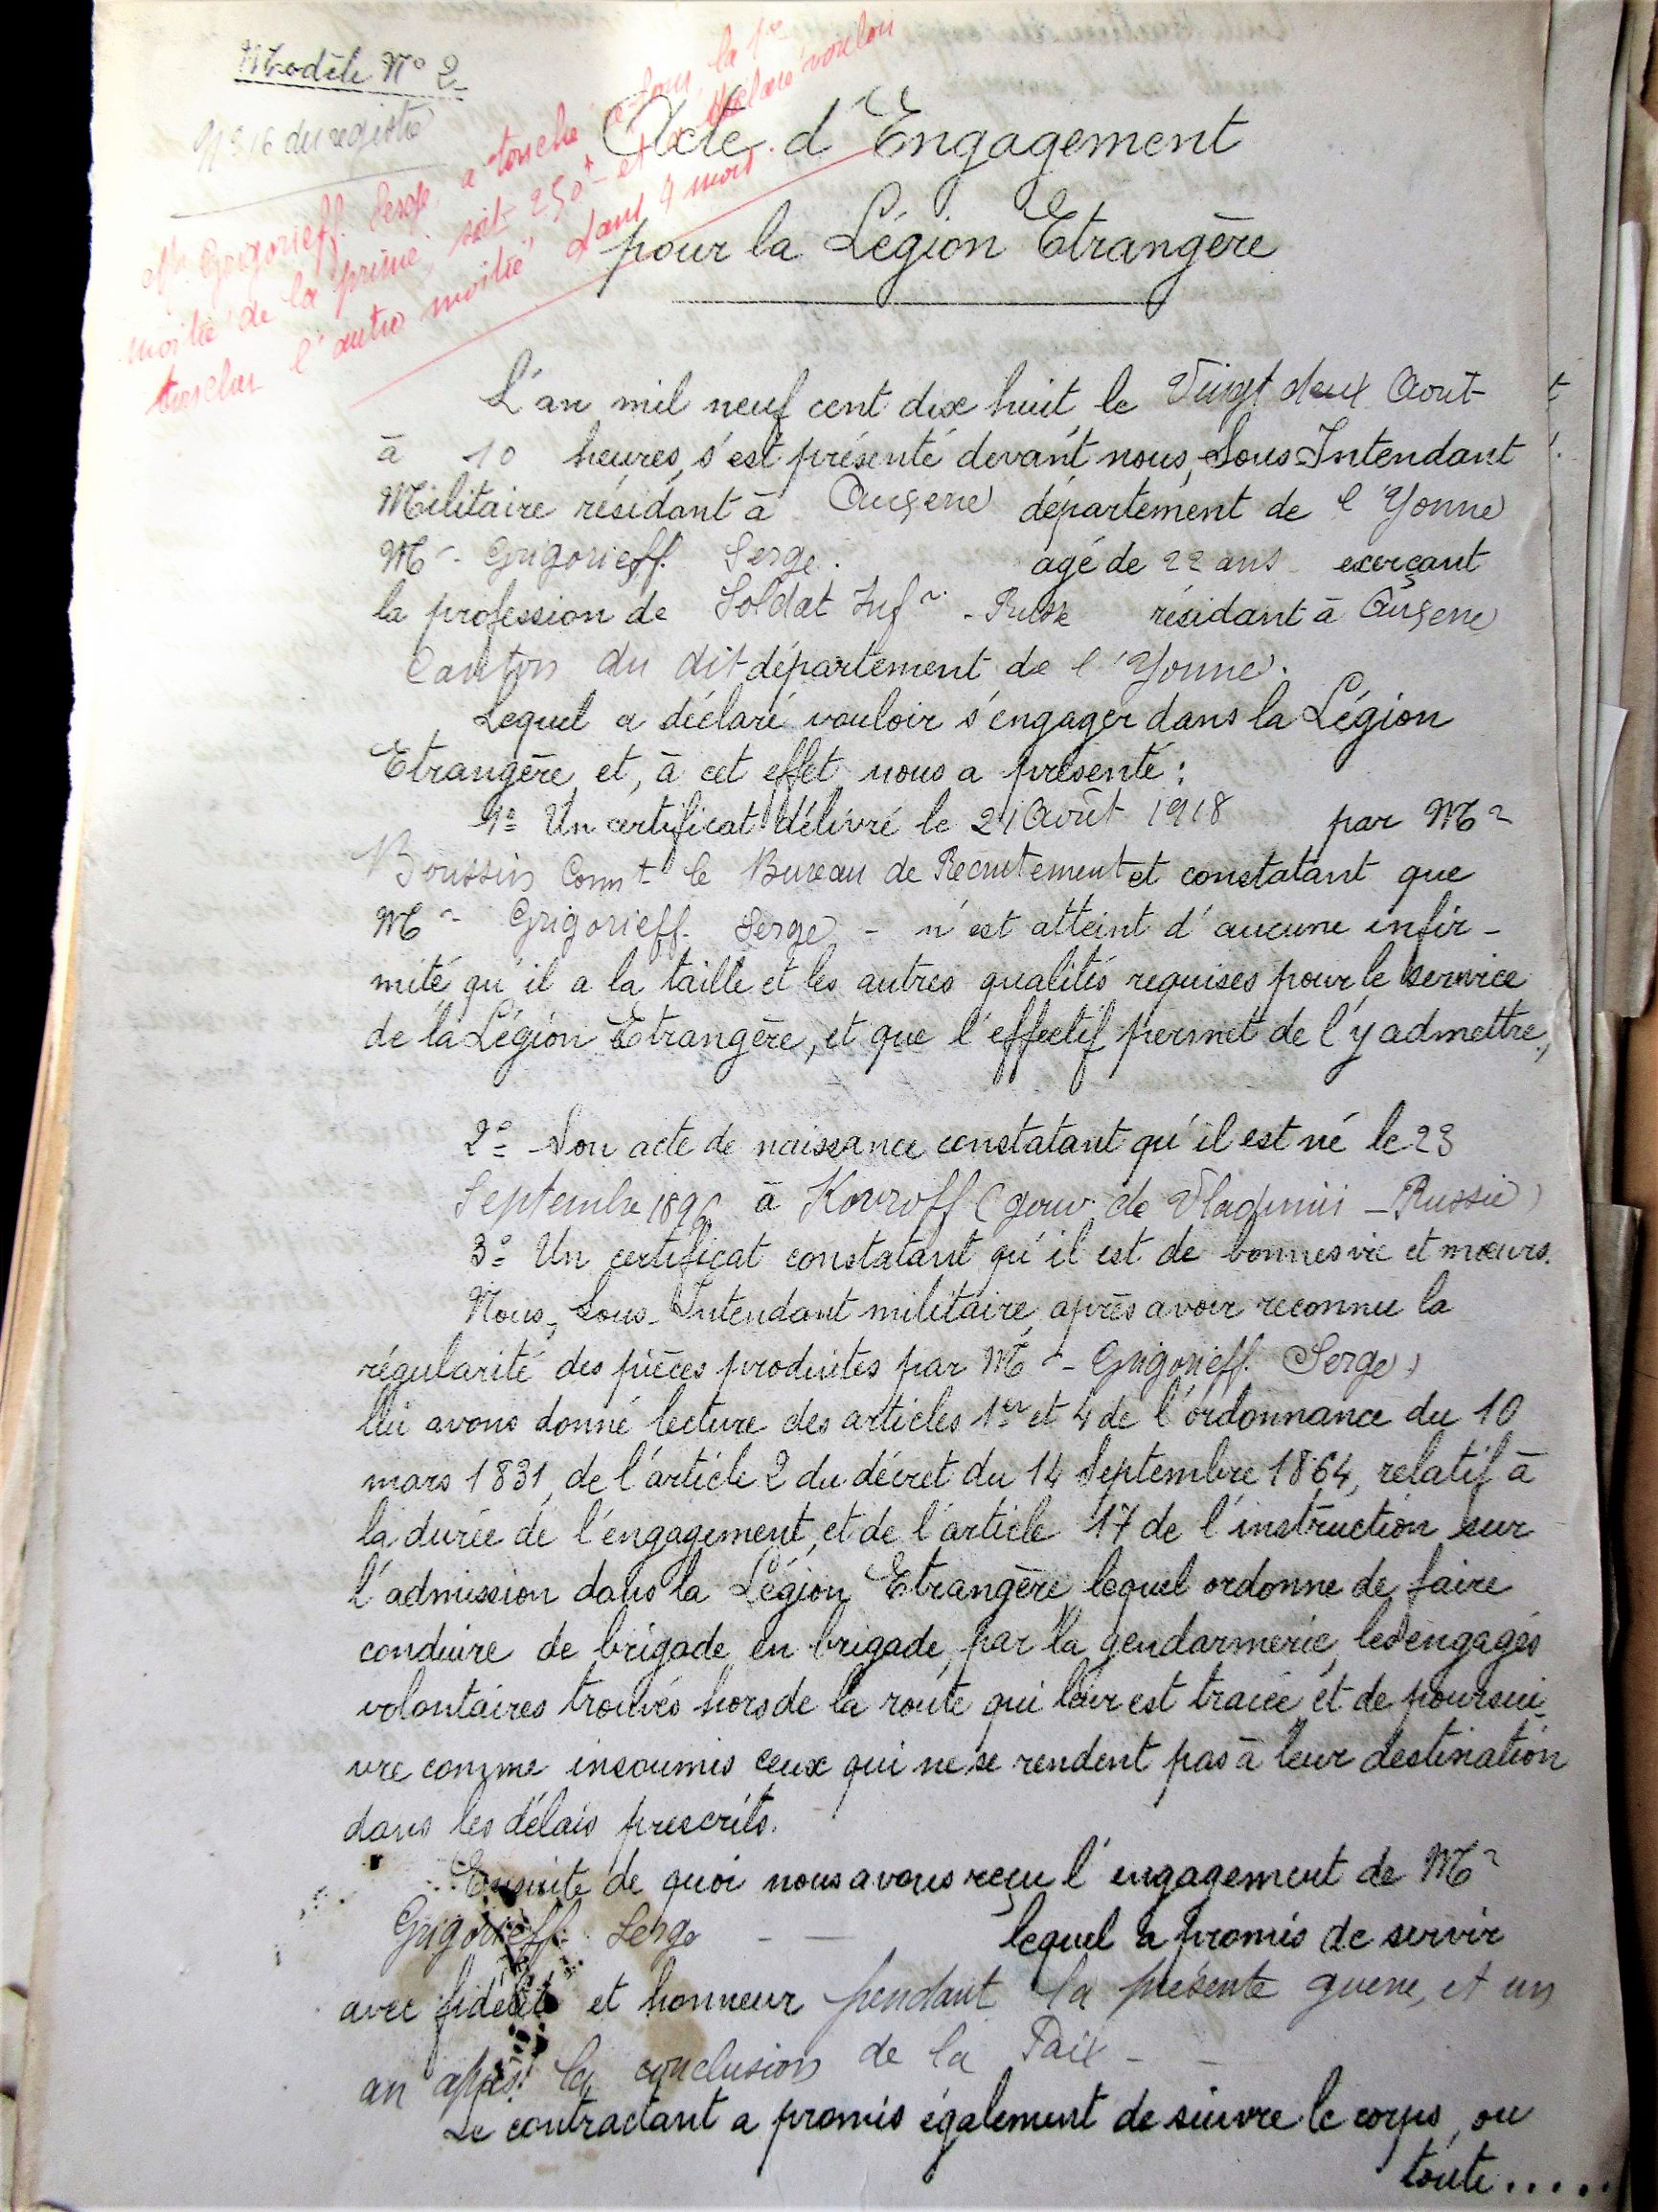 Modèle N° 2
N° 316 du registre
Mr. Grigorieff. Serge a touché ce jour la 1re
moitié de la prime, soit 250f et a déclaré vouloir
toucher l'autre moitié dans 4 mois.
Acte d'Engagement
pour la Légion Etrangère
L'an mil neuf cent dix huit, le Vingt deux Août
à 10 heures, s'est présenté devant nous, Sous-Intendant
Militaire résidant à Auxerre département de l'Yonne
Mr Grigorieff. Serge. agé de 22 ans exerçant
la profession de Soldat Infie Russe résidant à Auxerre
Canton du dit département de l'Yonne.
Lequel a déclaré vouloir s'engager dans la Légion
Etrangère et, à cet effet, nous a présenté :
1° Un certificat délivré le 21 Août 1918 par Mr
Boussin Commt le Bureau de Recrutement et constatant que
Mr Grigorieff. Serge - n'est atteint d'aucune infir-
mité, qu'il a la taille et les autres qualités requises pour le service
de la Légion Etrangère, et que l'effectif permet de l'y admettre,
2° Son acte de naissance constatant qu'il est né le 23
Septembre 1896 à Kovroff (gouv. de Vladimir - Russie)
3° Un certificat constatant qu'il est de bonnes vie et mœurs.
Nous, Sous-Intendant militaire, après avoir reconnu la
régularité des pièces produites par Mr - Grigorieff. Serge,
lui avons donné lecture des articles 1er et 4 de l'ordonnance du 10
mars 1831, de l'article 2 du décret du 14 Septembre 1864, relatif à
la durée de l'engagement, et de l'article 17 de l'instruction sur
l'admission dans la Légion Etrangère, lequel ordonne de faire
conduire de brigade en brigade, par la gendarmerie, les engagés
volontaires trouvés hors de la route qui leur est tracée et de poursui-
vre comme insoumis ceux qui ne se rendent pas à leur destination
dans les délais prescrits.
Ensuite de quoi nous avons reçu l'engagement de Mr
Grigorieff. Serge - - lequel a promis de servir
avec fidélité et honneur pendant la présente guerre, et un
an après la conclusion de la Paix - -
Le contractant a promis également de suivre le corps, ou
toute.....